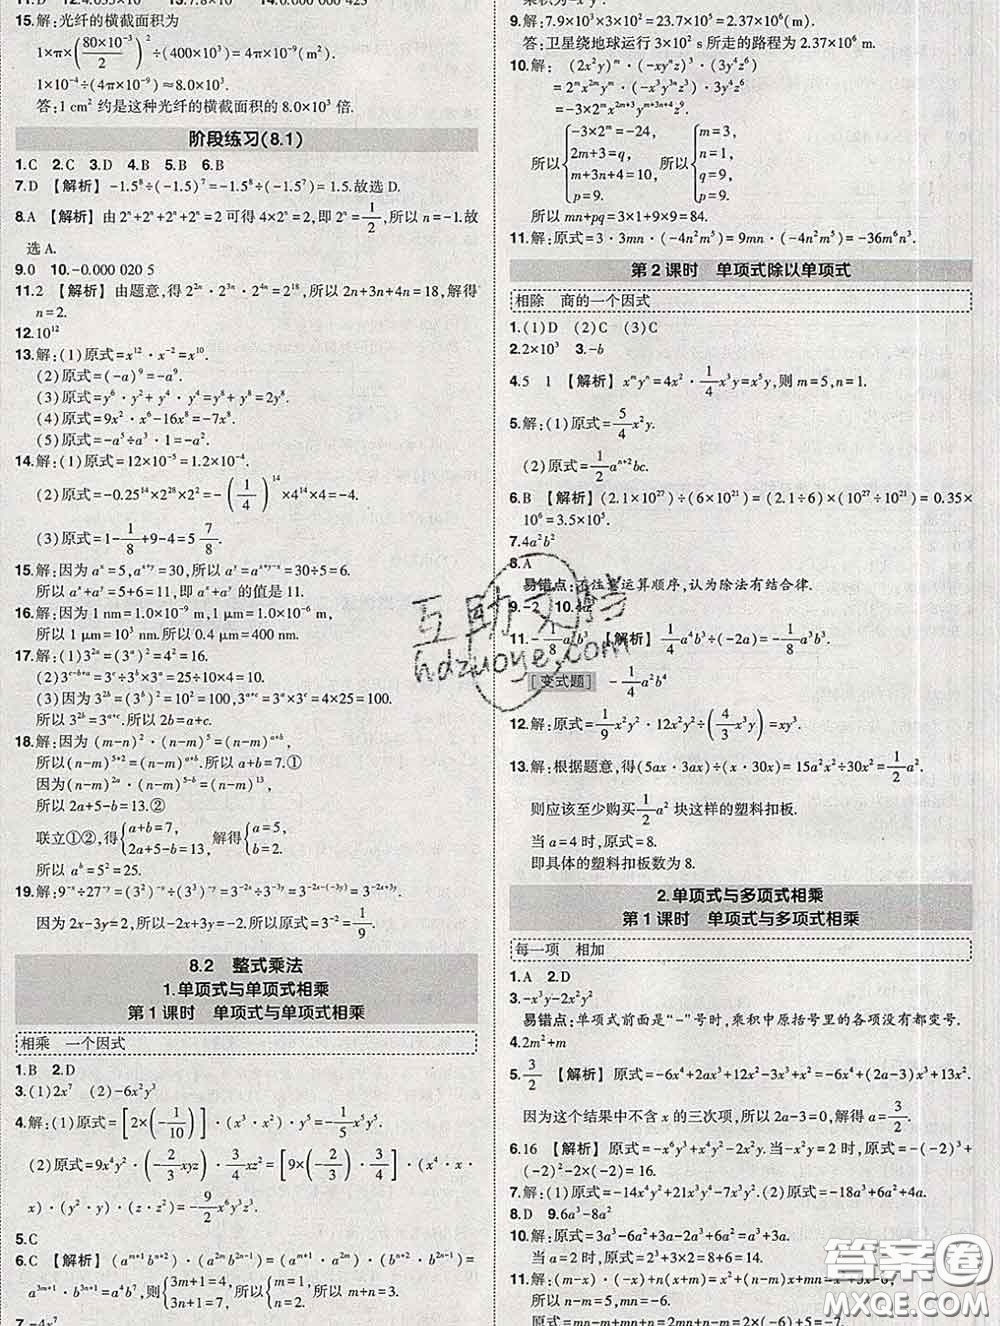 15.解:光纤的横截面积为
1×π×(80×10⁻³/2)²÷(400×10³)=4π×10⁻⁹(m).
1×10⁻⁴÷(4π×10⁻⁹)≈8.0×10³.
答:1 cm² 约是这种光纤的横截面积的 8.0×10³ 倍.
阶段练习(8.1)
1.C 2.C 3.D 4.B 5.B 6.B
7.D 【解析】-1.5⁸÷(-1.5)⁷=-1.5⁸÷(-1.5⁷)=1.5.故选 D.
8.A 【解析】由 2ⁿ+2ⁿ+2ⁿ+2ⁿ=2 可得 4×2ⁿ=2,即 2ⁿ=1/2,所以 n=-1.故
选 A.
9.0 10.-0.000 020 5
11.2 【解析】由题意,得 2²ⁿ·2³ⁿ·2⁴ⁿ=2¹⁸,所以 2n+3n+4n=18,解得
n=2.
12.10¹²
13.解:(1)原式=x¹²·x⁻²=x¹⁰.
(2)原式=(-a)⁹=-a⁹.
(3)原式=y⁶·y²+y⁴·y⁴=y⁸+y⁸=2y⁸.
(4)原式=9x²·x⁶-16x⁸=-7x⁸.
(5)原式=-a⁵÷a³·1=-a².
14.解:(1)原式=12×10⁻⁵=1.2×10⁻⁴.
(2)原式=-0.25¹⁴×2²⁸×2²=-(1/4)¹⁴×4¹⁴×4=-4.
(3)原式=1-1/8+9-4=5 7/8.
15.解:因为 aˣ=5,aˣ⁺ʸ=30,所以 aʸ=aˣ⁺ʸ÷aˣ=30÷5=6.
所以 aˣ+aʸ=5+6=11,即 aˣ+aʸ 的值是 11.
16.解:因为 1 nm=1.0×10⁻⁹ m,1 μm=1.0×10⁻⁶ m,
所以 1 μm=10³ nm.所以 0.4 μm=400 nm.
17.解:(1)3²ᵃ=(3ᵃ)²=4²=16.
(2)3ᶜ⁻ᵇ⁺ᵃ=3ᶜ÷3ᵇ×3ᵃ=25÷10×4=10.
(3)因为 3²ᵇ=(3ᵇ)²=10²=100,3ᵃ⁺ᶜ=3ᵃ×3ᶜ=4×25=100,
所以 3²ᵇ=3ᵃ⁺ᶜ.所以 2b=a+c.
18.解:因为 (m-n)²·(m-n)⁵=(n-m)ᵃ⁺ᵇ,
所以(n-m)⁵⁺²=(n-m)ᵃ⁺ᵇ.所以 a+b=7.①
因为(n-m)²ᵃ·(n-m)⁵⁻ᵇ=(n-m)¹³,
所以 2a+5-b=13.②
联立①②,得{a+b=7, 2a+5-b=13. 解得{a=5, b=2.
所以 aᵇ=5²=25.
19.解:9⁻ˣ÷27⁻ʸ=(3²)⁻ˣ÷(3³)⁻ʸ=3⁻²ˣ÷3⁻³ʸ=3⁻²ˣ⁻⁽⁻³ʸ⁾.因为
2x-3y=2,所以-2x+3y=-2,所以原式=3⁻²=1/9.
8.2 整式乘法
1.单项式与单项式相乘
第 1 课时 单项式与单项式相乘
相乘 一个因式
1.B 2.D
3.(1)2x⁷ (2)-6x²y³
4.解:(1)原式=[2×(-1/10)]·(x³·x²)·y=-1/5x⁵y.
(2)原式=9x⁴y²·(-2/3xyz)·3/4xz²=[9×(-2/3)×3/4]·(x⁴·x·
x)·(y²·y)·(z·z²)=-9/2x⁶y³z³.
5.C
6.C 【解析】(aᵐ⁺¹bⁿ⁺²)·(a²ᵐb²ⁿ⁻¹)=(aᵐ⁺¹·a²ᵐ)·(bⁿ⁺²·b²ⁿ⁻¹)=
a³ᵐ⁺¹·b³ⁿ⁺¹=a⁴b⁷,则{3m+1=4, 3n+1=7. 所以{m=1, n=2.
7.-4x⁷
9.解:7.9×10³×3×10²=23.7×10⁵=2.37×10⁶(m).
答:卫星绕地球运行 3×10² s 所走的路程为 2.37×10⁶ m.
10.解: (2x²y)ᵐ·(-xyⁿz)³·(3y⁴z⁶)
=2ᵐx²ᵐyᵐ·(-x³y³ⁿz³)·(3y⁴z⁶)
=-3×2ᵐx²ᵐ⁺³yᵐ⁺³ⁿ⁺⁴z⁹.
所以{-3×2ᵐ=-24, 2m+3=q, m+3n+4=10, p=9. 所以{m=3, n=1, q=9, p=9.
所以 mn+pq=3×1+9×9=84.
11.解:原式=3·3mn·(-4n²m⁵)=9mn·(-4n²m⁵)=-36m⁶n³.
第 2 课时 单项式除以单项式
相除 商的一个因式
1.(1)D (2)C (3)C
2.2×10³ 3.-b
4.5 1 【解析】xᵐyⁿ=4x²·1/4x³y=x⁵y,则 m=5,n=1.
5.解:(1)原式=5/4x²y.
(2)原式=1/2aⁿ⁺²bc.
6.B 【解析】(2.1×10²⁷)÷(6×10²¹)=(2.1÷6)×(10²⁷÷10²¹)=0.35×
10⁶=3.5×10⁵.
7.4a²b²
8.A
易错点:不注意运算顺序,认为除法有结合律.
9.-2 10.4
11.-1/8a³b³ 【解析】1/4a⁴b³÷(-2a)=-1/8a³b³.
[变式题] -1/4a²b⁴
12.解:原式=1/9x²y²·12x²y÷(4/3x³y)=xy³.
13.解:根据题意,得(5ax·3ax)÷(x·30x)=15a²x²÷30x²=1/2a².
则应该至少购买1/2a² 块这样的塑料扣板.
当 a=4 时,原式=8.
即具体的塑料扣板数为 8.
2.单项式与多项式相乘
第 1 课时 单项式与多项式相乘
每一项 相加
1.A 2.D
3.-x³y-2x²y²
易错点:单项式前面是“-”号时,乘积中原括号里的各项没有都变号.
4.2m²+m
5.3/2 【解析】原式=-6x⁴+2ax³+12x²-3x³+x²=-6x⁴+(2a-3)x³+13x².
因为这个结果中不含 x 的三次项,所以 2a-3=0,解得 a=3/2.
6.16 【解析】原式=-x⁶y³+x⁴y²-2x²y.当 x²y=2 时,原式=-(-2)³+
(-2)²-2×(-2)=16.
7.解:(1)原式=-14x⁴y²+21x³y-7x²y².(2)原式=-18a³+6a²+4a.
8.D 9.6a³-8a²
10.解:原式=3a³-6a²+3a-2a³+6a²=a³+3a.
当 a=2 时,原式=2³+3×2=8+6=14.
互助文档
hdzuoye.com
答案圈
MXQE.COM